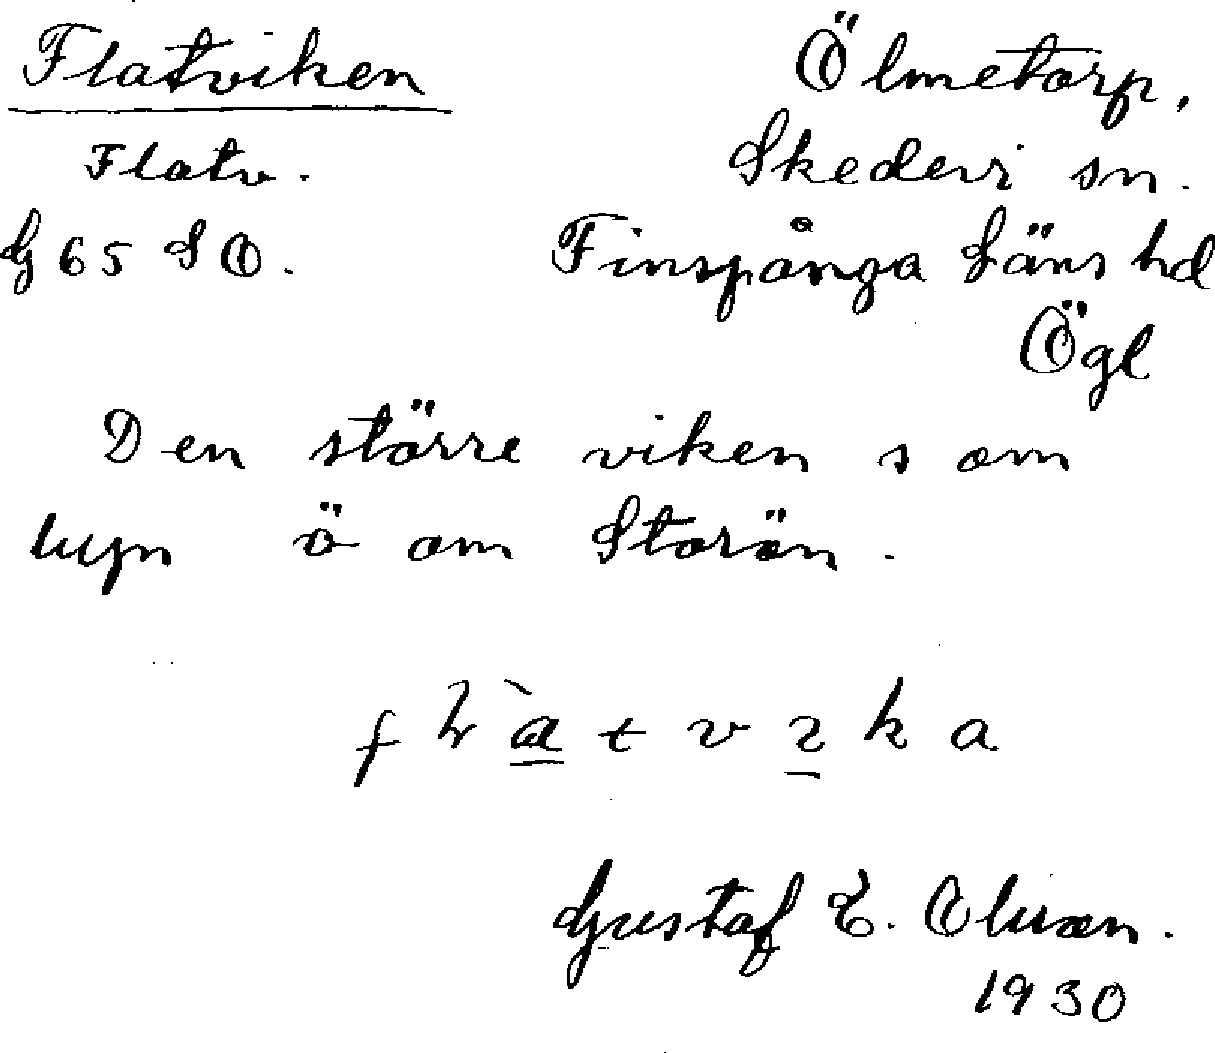 Flatviken
Ölmetorp.
Flatv.
Skedevi sn.
G 65 SO.
Finspånga Läns hd
Ögl
Den större viken s om
byn ö om Storön.
Gustaf E. Olsson.
1930